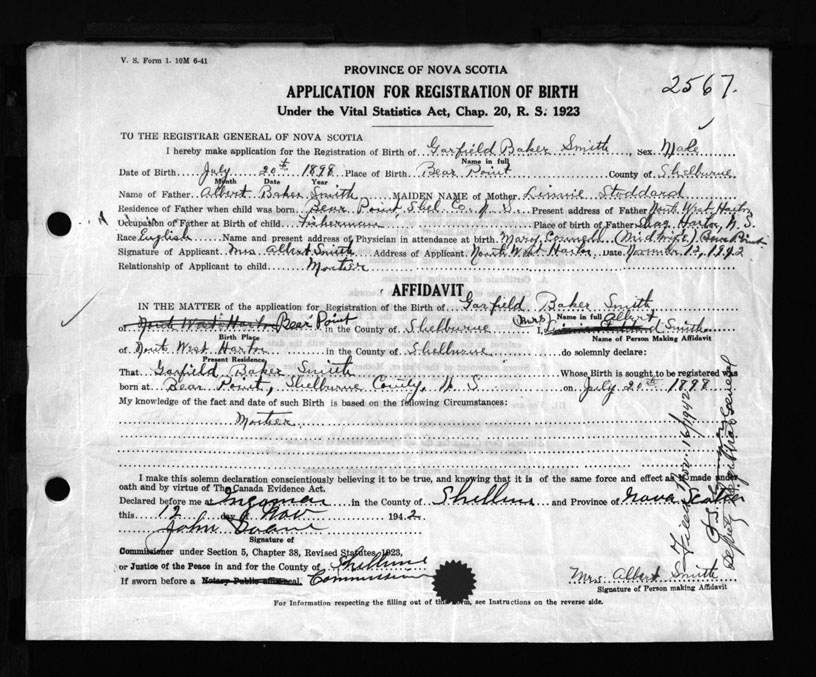 V. S. Form 1. 10M 6-41
PROVINCE OF NOVA SCOTIA
2567.
APPLICATION FOR REGISTRATION OF BIRTH
Under the Vital Statistics Act, Chap. 20, R. S. 1923
TO THE REGISTRAR GENERAL OF NOVA SCOTIA
I hereby make application for the Registration of Birth of Garfield Baker Smith, Sex Male
Name in full
Date of Birth July 20th 1898 Place of Birth Bear Point County of Shelburne
Month Date Year
Name of Father Albert Baker Smith MAIDEN NAME of Mother Linnie Stoddard
Residence of Father when child was born Bear Point Shel. Co. N. S. Present address of Father North West Harbor
Occupation of Father at Birth of child Fisherman Place of birth of Father Shag Harbor, N. S.
Race English Name and present address of Physician in attendance at birth Mary (Midwife) Bear Point
Signature of Applicant Mrs Albert Smith Address of Applicant North West Harbor Date November 12, 1942
Relationship of Applicant to child Mother
AFFIDAVIT
IN THE MATTER of the application for Registration of the Birth of Garfield Baker Smith
Name in full
of North West Harbor Bear Point in the County of Shelburne I, (Mrs) Albert Smith
Birth Place Name of Person Making Affidavit
of North West Harbor in the County of Shelburne do solemnly declare:
Present Residence
That Garfield Baker Smith Whose Birth is sought to be registered was
born at Bear Point, Shelburne County, N. S on July 20th 1898
My knowledge of the fact and date of such Birth is based on the following Circumstances:
Mother
I make this solemn declaration conscientiously believing it to be true, and knowing that it is of the same force and effect as if made under
oath and by virtue of The Canada Evidence Act.
Declared before me at in the County of Shelburne and Province of Nova Scotia
this 12 day of Nov 1942
John Doane
Signature of
Commissioner under Section 5, Chapter 38, Revised Statutes, 1923,
or Justice of the Peace in and for the County of Shelburne
If sworn before a Notary Public affix seal. Commissioner
Mrs Albert Smith
Signature of Person making Affidavit
For Information respecting the filling out of this form, see Instructions on the reverse side.
Filed Nov. 16/1942
Deputy Registrar General